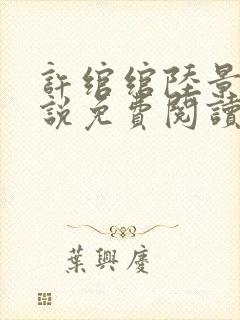 許綰綰陸景
說免費閱讀
葉興慶